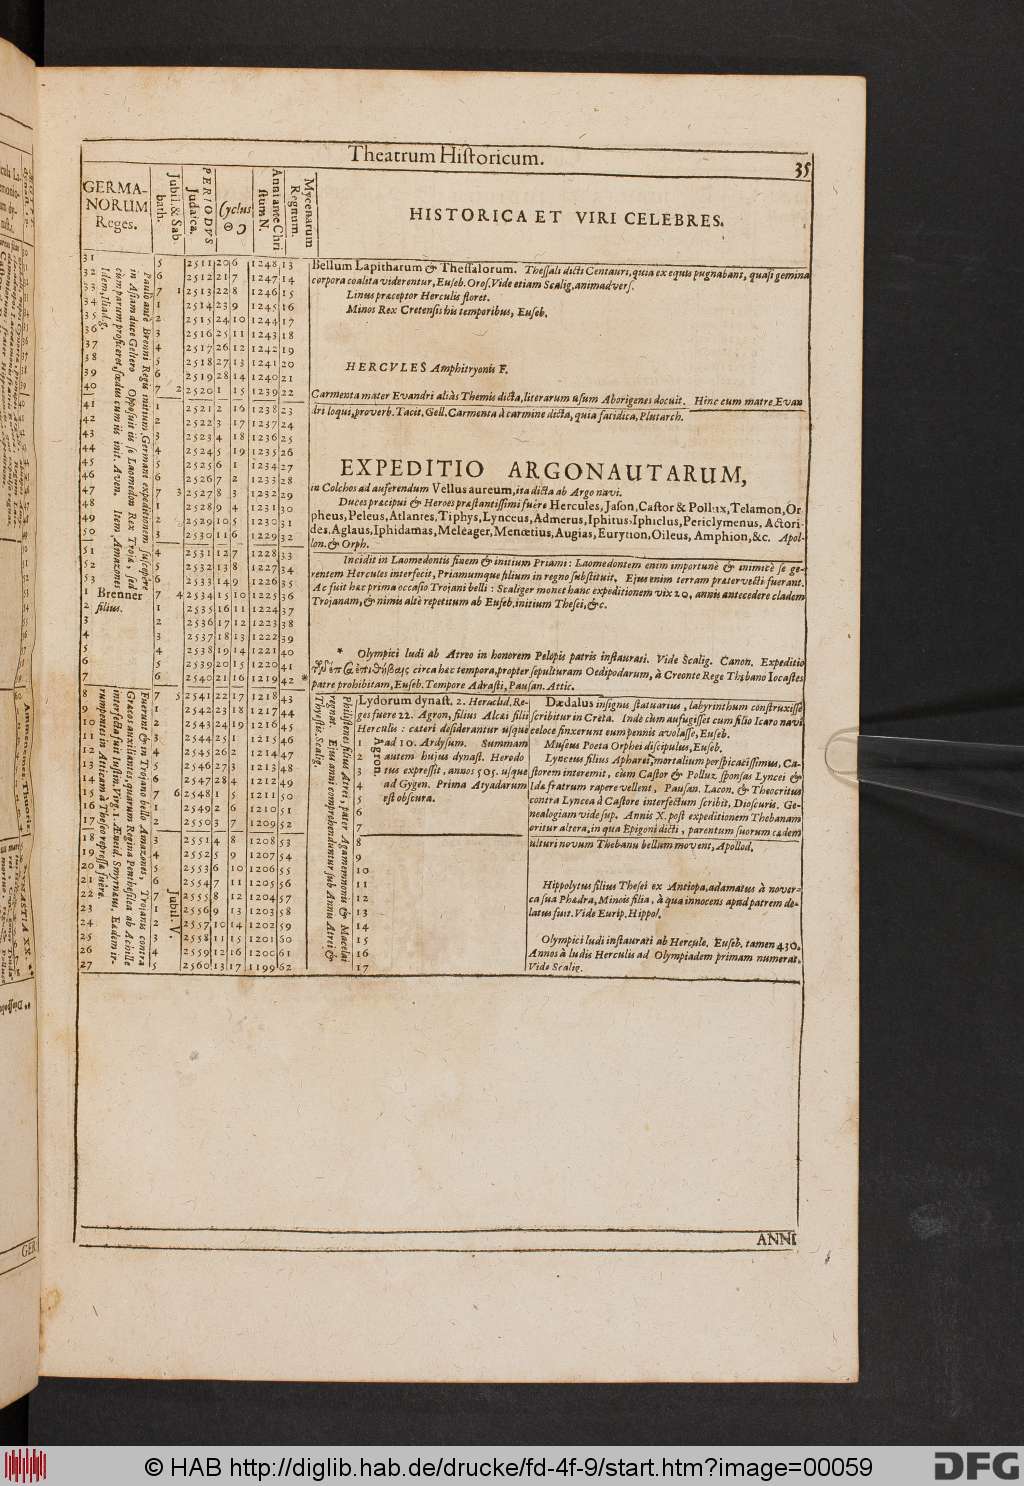 Theatrum Historicum.
35
GERMA-
NORUM
Reges.
Jubil. & Sab
bath.
PERIODVS
Judaica.
Cyclus
☉ ☽
Anni ante Chri
stum N.
Mycenarum
Regnum.
HISTORICA ET VIRI CELEBRES.
31 5 2511 20 6 1248 13
32 6 2512 21 7 1247 14
33 7 1 2513 22 8 1246 15
34 1 2514 23 9 1245 16
35 2 2515 24 10 1244 17
36 3 2516 25 11 1243 18
37 4 2517 26 12 1242 19
38 5 2518 27 13 1241 20
39 6 2519 28 14 1240 21
40 7 2 2520 1 15 1239 22
41 1 2521 2 16 1238 23
42 2 2522 3 17 1237 24
43 3 2523 4 18 1236 25
44 4 2524 5 19 1235 26
45 5 2525 6 1 1234 27
46 6 2526 7 2 1233 28
47 7 3 2527 8 3 1232 29
48 1 2528 9 4 1231 30
49 2 2529 10 5 1230 31
50 3 2530 11 6 1229 32
51 4 2531 12 7 1228 33
52 5 2532 13 8 1227 34
53 6 2533 14 9 1226 35
1 Brenner 7 4 2534 15 10 1225 36
2 filius. 1 2535 16 11 1224 37
3 2 2536 17 12 1223 38
4 3 2537 18 13 1222 39
5 4 2538 19 14 1221 40
6 5 2539 20 15 1220 41
7 6 2540 21 16 1219 42 *
8 7 5 2541 22 17 1218 43
9 1 2542 23 18 1217 44
10 2 2543 24 19 1216 45
11 3 2544 25 1 1215 46
12 4 2545 26 2 1214 47
13 5 2546 27 3 1213 48
14 6 2547 28 4 1212 49
15 7 6 2548 1 5 1211 50
16 1 2549 2 6 1210 51
17 2 2550 3 7 1209 52
18 3 2551 4 8 1208 53
19 4 2552 5 9 1207 54
20 5 2553 6 10 1206 55
21 6 2554 7 11 1205 56
22 7 2555 8 12 1204 57
23 1 2556 9 13 1203 58
24 2 2557 10 14 1202 59
25 3 2558 11 15 1201 60
26 4 2559 12 16 1200 61
27 5 2560 13 17 1199 62
Jubil. V.
Paulò antè Brenni Regis initium, Germani expeditionem suscepère
in Asiam duce Geltero Opposuit iis se Laomedon Rex Troja, sed
cùm parum proficeret, fœdus cum iis init. Aven. Item, Amazones
Idem, Iliad. g.
Fuerunt & in Trojano bello Amazones, Trojanis contra
Græcos auxiliantes, quarum Regina Penthesilea ab Achille
interfecta fuit Iustin. Virg. 1. Æneid. Smyrnæus. Eædem ir-
rumpentes in Atticam à Theseo repressæ fuére.
Bellum Lapitharum & Thessalorum. Thessali dicti Centauri, quia ex equis pugnabant, quasi gemina
corpora coalita viderentur, Euseb. Oros. Vide etiam Scalig. animadvers.
Linus præceptor Herculis floret.
Minos Rex Cretensis his temporibus, Euseb.
HERCVLES Amphitryonis F.
Carmenta mater Evandri aliàs Themis dicta, literarum usum Aborigenes docuit. Hinc eum matre Evan
dri loqui, proverb. Tacit, Gell. Carmenta à carmine dicta, quia fatidica, Plutarch.
EXPEDITIO ARGONAUTARUM,
in Colchos ad auferendum Vellus aureum, ita dicta ab Argo navi.
Duces præcipui & Heroes præstantissimi fuère Hercules, Jason, Castor & Pollux, Telamon, Or
pheus, Peleus, Atlantes, Tiphys, Lynceus, Admerus, Iphitus, Iphiclus, Periclymenus, Actori-
des, Aglaus, Iphidamas, Meleager, Menœtius, Augias, Eurytion, Oileus, Amphion, &c. Apol-
lon. & Orph.
Incidit in Laomedontis finem & initium Priami: Laomedontem enim importunè & inimicè se ge-
rentem Hercules interfecit, Priamumque filium in regno substituit. Ejus enim terram præter vecti fuerant.
Ac fuit hæc prima occasio Trojani belli: Scaliger monet hanc expeditionem vix 20, annis antecedere cladem
Trojanam, & nimis altè repetitum ab Euseb. initium Thesei, &c.
* Olympici ludi ab Atreo in honorem Pelopis patris instaurati. Vide Scalig. Canon. Expeditio
circa hæc tempora, propter sepulturam Oedipodarum, à Creonte Rege Thebano Iocastes
patre prohibitam, Euseb. Tempore Adrasti, Pausan. Attic.
Philistenes filius Atrei, pater Agamemnonis & Menelai
regnat. Ejus anni comprehenduntur sub Annis Atrei &
Thyestis. Scalig.
Lydorum dynast. 2. Heraclid. Re-
ges fuere 22. Agron, filius Alcæi filii
Herculis: cæteri desiderantur usque
ad 10. Ardysum. Summam
autem hujus dynast. Herodo
tus expressit, annos 505. usque
ad Gygen. Prima Atyadarum
est obscura.
Agron.
1
2
3
4
5
6
7
8
9
10
11
12
13
14
15
16
17
Dædalus insignis statuarius, labyrinthum construxisse
scribitur in Creta. Inde cùm aufugisset cum filio Icaro navi
veloce finxerunt eum pennis avolasse, Euseb.
Musæus Poeta Orphei discipulus, Euseb.
Lynceus filius Apharei, mortalium perspicacissimus, Ca-
storem interemit, cùm Castor & Pollux sponsas Lyncei &
Idæ fratrum rapere vellent, Pausan. Lacon, & Theocritus
contra Lyncea à Castore interfectum scribit, Dioscuris. Ge-
nealogiam vide sup. Annis X. post expeditionem Thebanam
oritur altera, in qua Epigoni dicti, parentum suorum cædem
ulturi novum Thebanis bellum movent, Apollod.
Hippolytus filius Thesei ex Antiopa, adamatus à nover-
ca sua Phædra, Minois filia, à qua innocens apud patrem de-
latus fuit. Vide Eurip. Hippol.
Olympici ludi instaurati ab Hercule. Euseb. tamen 430.
Annos à ludis Herculis ad Olympiadem primam numerat.
Vide Scalig.
ANNI
GER
© HAB http://diglib.hab.de/drucke/fd-4f-9/start.htm?image=00059
DFG